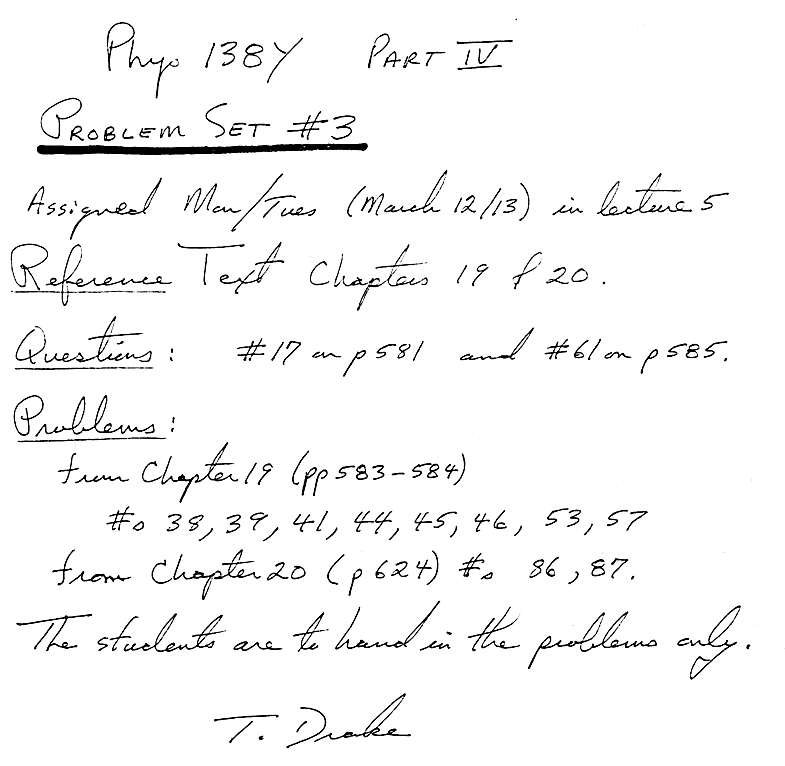 Phys 138Y PART IV
PROBLEM SET #3
Assigned Mon/Tues (March 12/13) in lecture 5
Reference Text Chapters 19 & 20.
Questions: #17 on p581 and #61 on p585.
Problems:
from Chapter 19 (pp583-584)
#s 38, 39, 41, 44, 45, 46, 53, 57
from Chapter 20 (p624) #s 86, 87.
The students are to hand in the problems only.
T. Drake